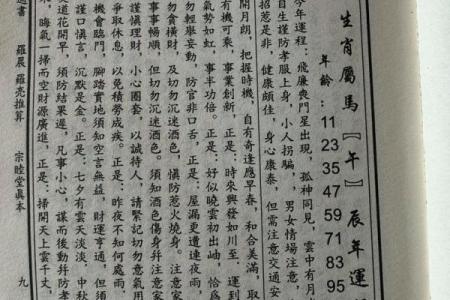 生肖屬馬『午』辰年運
年齡：11 23 35 47 59 71 83 95
今年運程：飛廉喪門星出現，孤神同見，雲中有月
自生謹防孝服上身，小人拐騙，男女情場注意，
招惹是非，健康頗佳，身心康泰，但需注意交通安
開月朗，把握時機，自有奇逢應早春，和合美滿，取
有機可乘，事業創新，正是：時來興發如川至，運到
氣勢如虹，事半功倍。正是：好似曉雲初出岫，恰爲
勿輕舉妄動，防官非口舌，正是：屋漏更遭連夜雨，
勿貪橫財，及切勿沉迷酒色，慎防惹火燒身。注意家
事事暢順，但切勿沉迷酒色。須知酒色傷身幷注意家
謹慎理財，小心圈套，以誠待人，請緊記切勿意氣用
爭取休息，以免積勞成疾。正是：昨夜不知何處雨，
機會臨門，腳踏實地須知空言無益，財運亨通，但須
護口慎言，沉默是金。正是：七夕有雲天淡淡，中秋
災道花開早，須防結果遲，凡事小心，謀而後動幷防孝
，晦氣一掃而空財源廣進，正是：掃開天上雲千丈，
羅展 羅亮推算 宗睦堂眞本 九